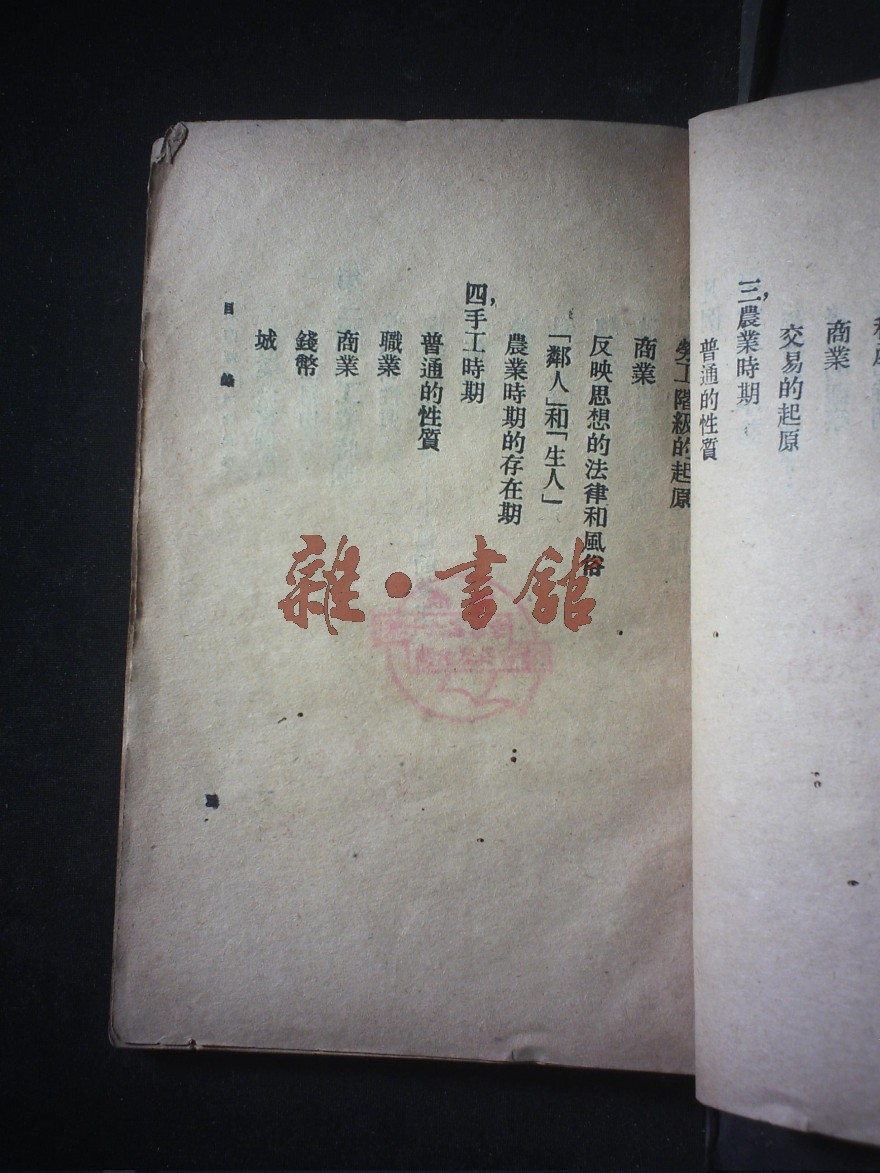 商業
交易的起原
三，農業時期
普通的性質
勞工階級的起原
商業
反映思想的法律和風俗
「鄰人」和「生人」
農業時期的存在期
四，手工時期
普通的性質
職業
商業
錢幣
城
目錄
雜·書館